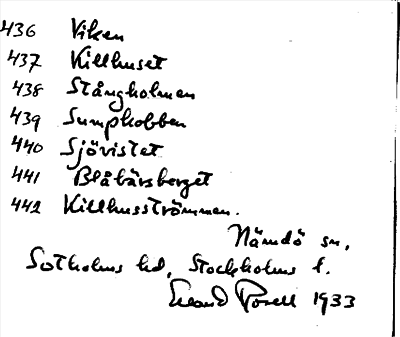 436 Viken
437 Killhuset
438 Stångholmen
439 Sumpkobben
440 Sjövistet
441 Blåbärsberget
442 Killhusströmmen.
Nämdö sn,
Sotholms hd, Stockholms l.
Rosell 1933